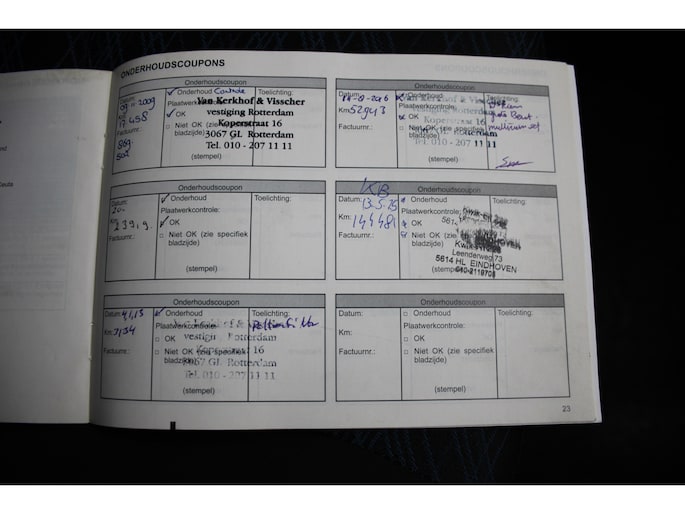 ONDERHOUDSCOUPONS
Onderhoudscoupon
Datum:
09 11 2009
Km:
17458
Factuurnr.:
Onderhoud Controle
Plaatwerkcontrole:
OK
Niet OK (zie specifiek
bladzijde)
(stempel)
Toelichting:
Van Kerkhof & Visscher
vestiging Rotterdam
Koperstraat 16
3067 GL Rotterdam
Tel. 010 - 207 11 11
Onderhoudscoupon
Datum:
Km:
Factuurnr.:
Onderhoud
Plaatwerkcontrole:
OK
Niet OK (zie specifiek
bladzijde)
(stempel)
Toelichting:
Onderhoudscoupon
Datum:
Km:
Factuurnr.:
Onderhoud
Plaatwerkcontrole:
OK
Niet OK (zie specifiek
bladzijde)
(stempel)
Toelichting:
Pollenfilter
Van Kerkhof & Visscher
vestiging Rotterdam
Koperstraat 16
3067 GL Rotterdam
Tel. 010 - 207 11 11
Onderhoudscoupon
Km:
52943
Factuurnr.:
Onderhoud
Plaatwerkcontrole:
OK
Niet OK (zie specifiek
bladzijde)
(stempel)
grote Beurt
multiriem set
Van Kerkhof & Visscher
vestiging Rotterdam
Koperstraat 16
3067 GL Rotterdam
Tel. 010 - 207 11 11
Onderhoudscoupon
KB
Datum:
13.5.25
Km:
144481
Factuurnr.:
Onderhoud
Plaatwerkcontrole:
OK
Niet OK (zie specifiek
bladzijde)
(stempel)
Toelichting:
Leenderweg 73
5614 HL EINDHOVEN
Onderhoudscoupon
Datum:
Km:
Factuurnr.:
Onderhoud
Plaatwerkcontrole:
OK
Niet OK (zie specifiek
bladzijde)
(stempel)
Toelichting:
23